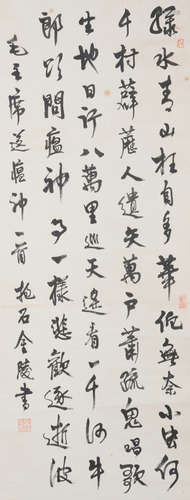 綠水青山枉自多華佗無奈小虫何
千村薜荔人遺矢萬戶蕭疏鬼唱歌
坐地日行八萬里巡天遙看一千河牛
郎欲問瘟神事一樣悲歡逐逝波
毛主席送瘟神一首 抱石金陵書